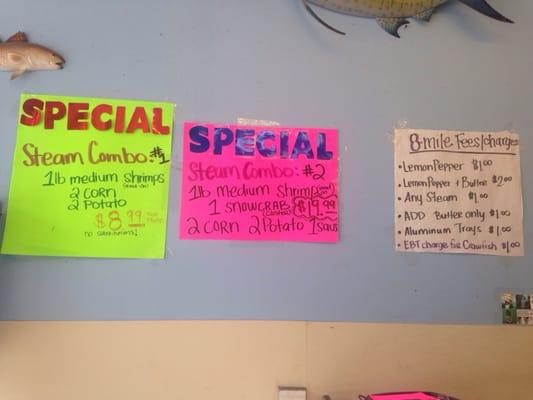 SPECIAL
Steam Combo: #1
1lb medium shrimps
2 CORN
2 Potato
$8.99
no substitutions!
SPECIAL
Steam Combo: #2
1lb medium shrimps
1 SNOWCRAB $19.99
2 CORN 2 Potato 1 saus
8-mile Fees/charges
• Lemon Pepper $1.00
• Lemon Pepper + Butter $2.00
• Any Steam $1.00
• ADD Butter only $1.00
• Aluminum Trays $1.00
• EBT charge for Crawfish $1.00